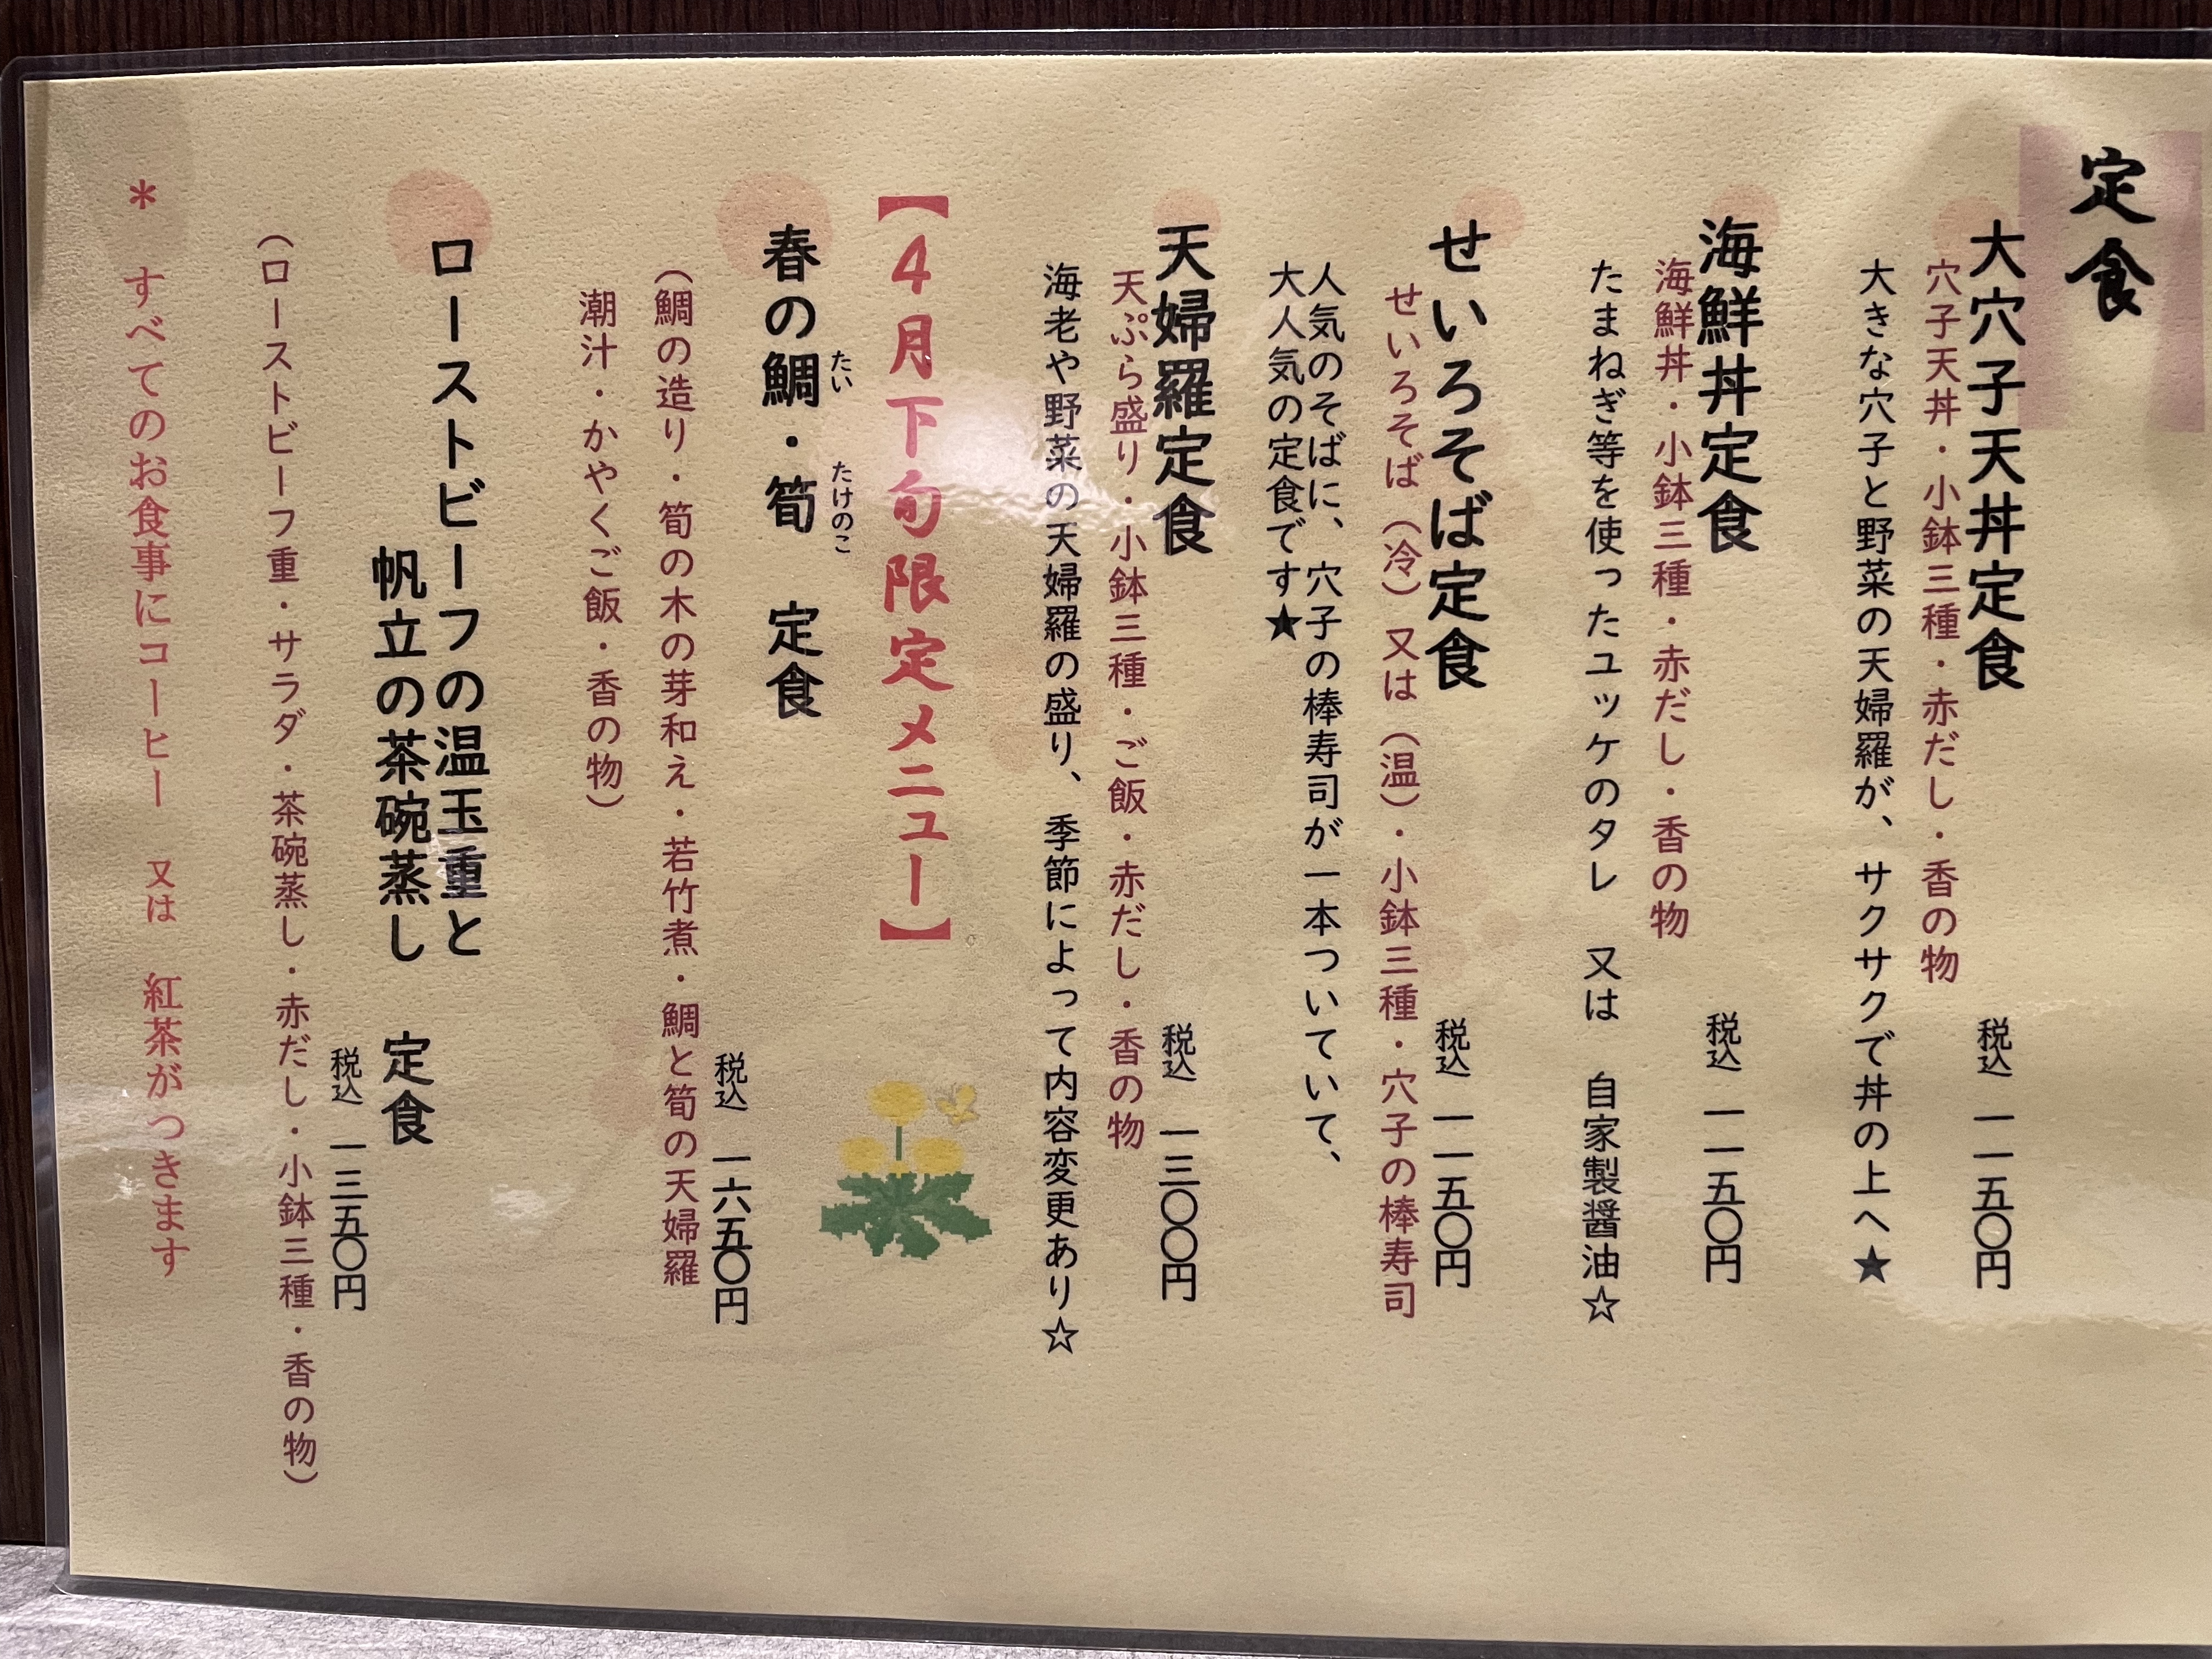 定食
大穴子天丼定食　税込　一一五〇円
穴子天丼・小鉢三種・赤だし・香の物
大きな穴子と野菜の天婦羅が、サクサクで丼の上へ★
海鮮丼定食　税込　一一五〇円
海鮮丼・小鉢三種・赤だし・香の物
たまねぎ等を使ったユッケのタレ　又は　自家製醤油☆
せいろそば定食　税込　一一五〇円
せいろそば（冷）又は（温）・小鉢三種・穴子の棒寿司
人気のそばに、穴子の棒寿司が一本ついていて、
大人気の定食です★
天婦羅定食　税込　一三〇〇円
天ぷら盛り・小鉢三種・ご飯・赤だし・香の物
海老や野菜の天婦羅の盛り、季節によって内容変更あり☆
【4月下旬限定メニュー】
たい　たけのこ
春の鯛・筍　定食　税込　一六五〇円
（鯛の造り・筍の木の芽和え・若竹煮・鯛と筍の天婦羅
潮汁・かやくご飯・香の物）
ローストビーフの温玉重と
帆立の茶碗蒸し　定食
税込　一三五〇円
（ローストビーフ重・サラダ・茶碗蒸し・赤だし・小鉢三種・香の物）
＊　すべてのお食事にコーヒー　又は　紅茶がつきます